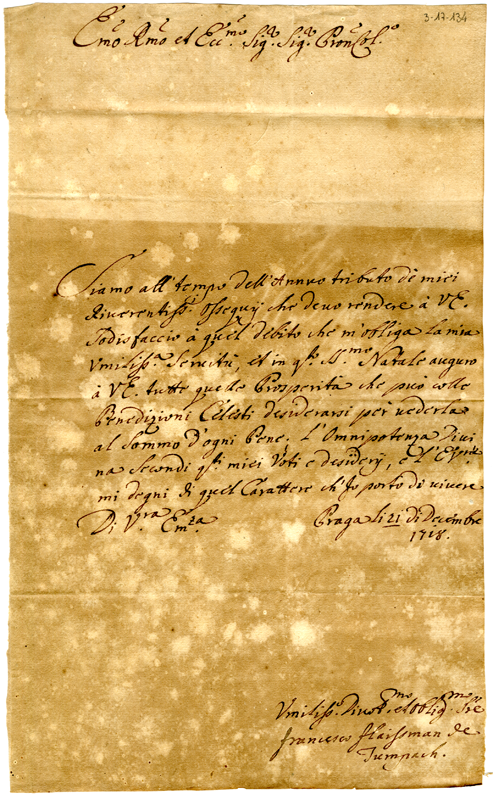 3-17-134
E.mo R.mo et Ecc.mo Sig.r Sig.r Pron Col.o
Siamo all'tempo dell'Annuo tributo dè miei
Riverentiss.i Ossequij che devo rendere à V.E.
Sodisfaccio à quel debito che m'obliga la mia
Umiliss.a Servitù, et in q.sto S.mo Natale auguro
à V.E. tutte quelle Prosperità che può colle
Benedizioni Celesti desiderarsi per vederla
al Sommo d'ogni Bene. L'Omnipotenza Divi
na Secondi q.sti miei Voti e desiderij, e l'E.V.
mi degni di quel Carattere ch'Io porto di vivere
Di V.ra Em.za Praga li 21 di Decembre
1718.
Umiliss.o Divot.mo et oblig.mo Sre
Francesco Flaissman de
Tumpach.